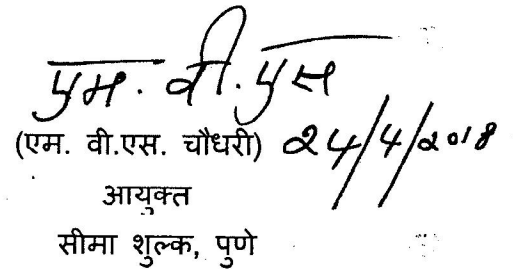 एम. वी. एस
(एम. वी.एस. चौधरी) 24/4/2018
आयुक्त
सीमा शुल्क, पुणे